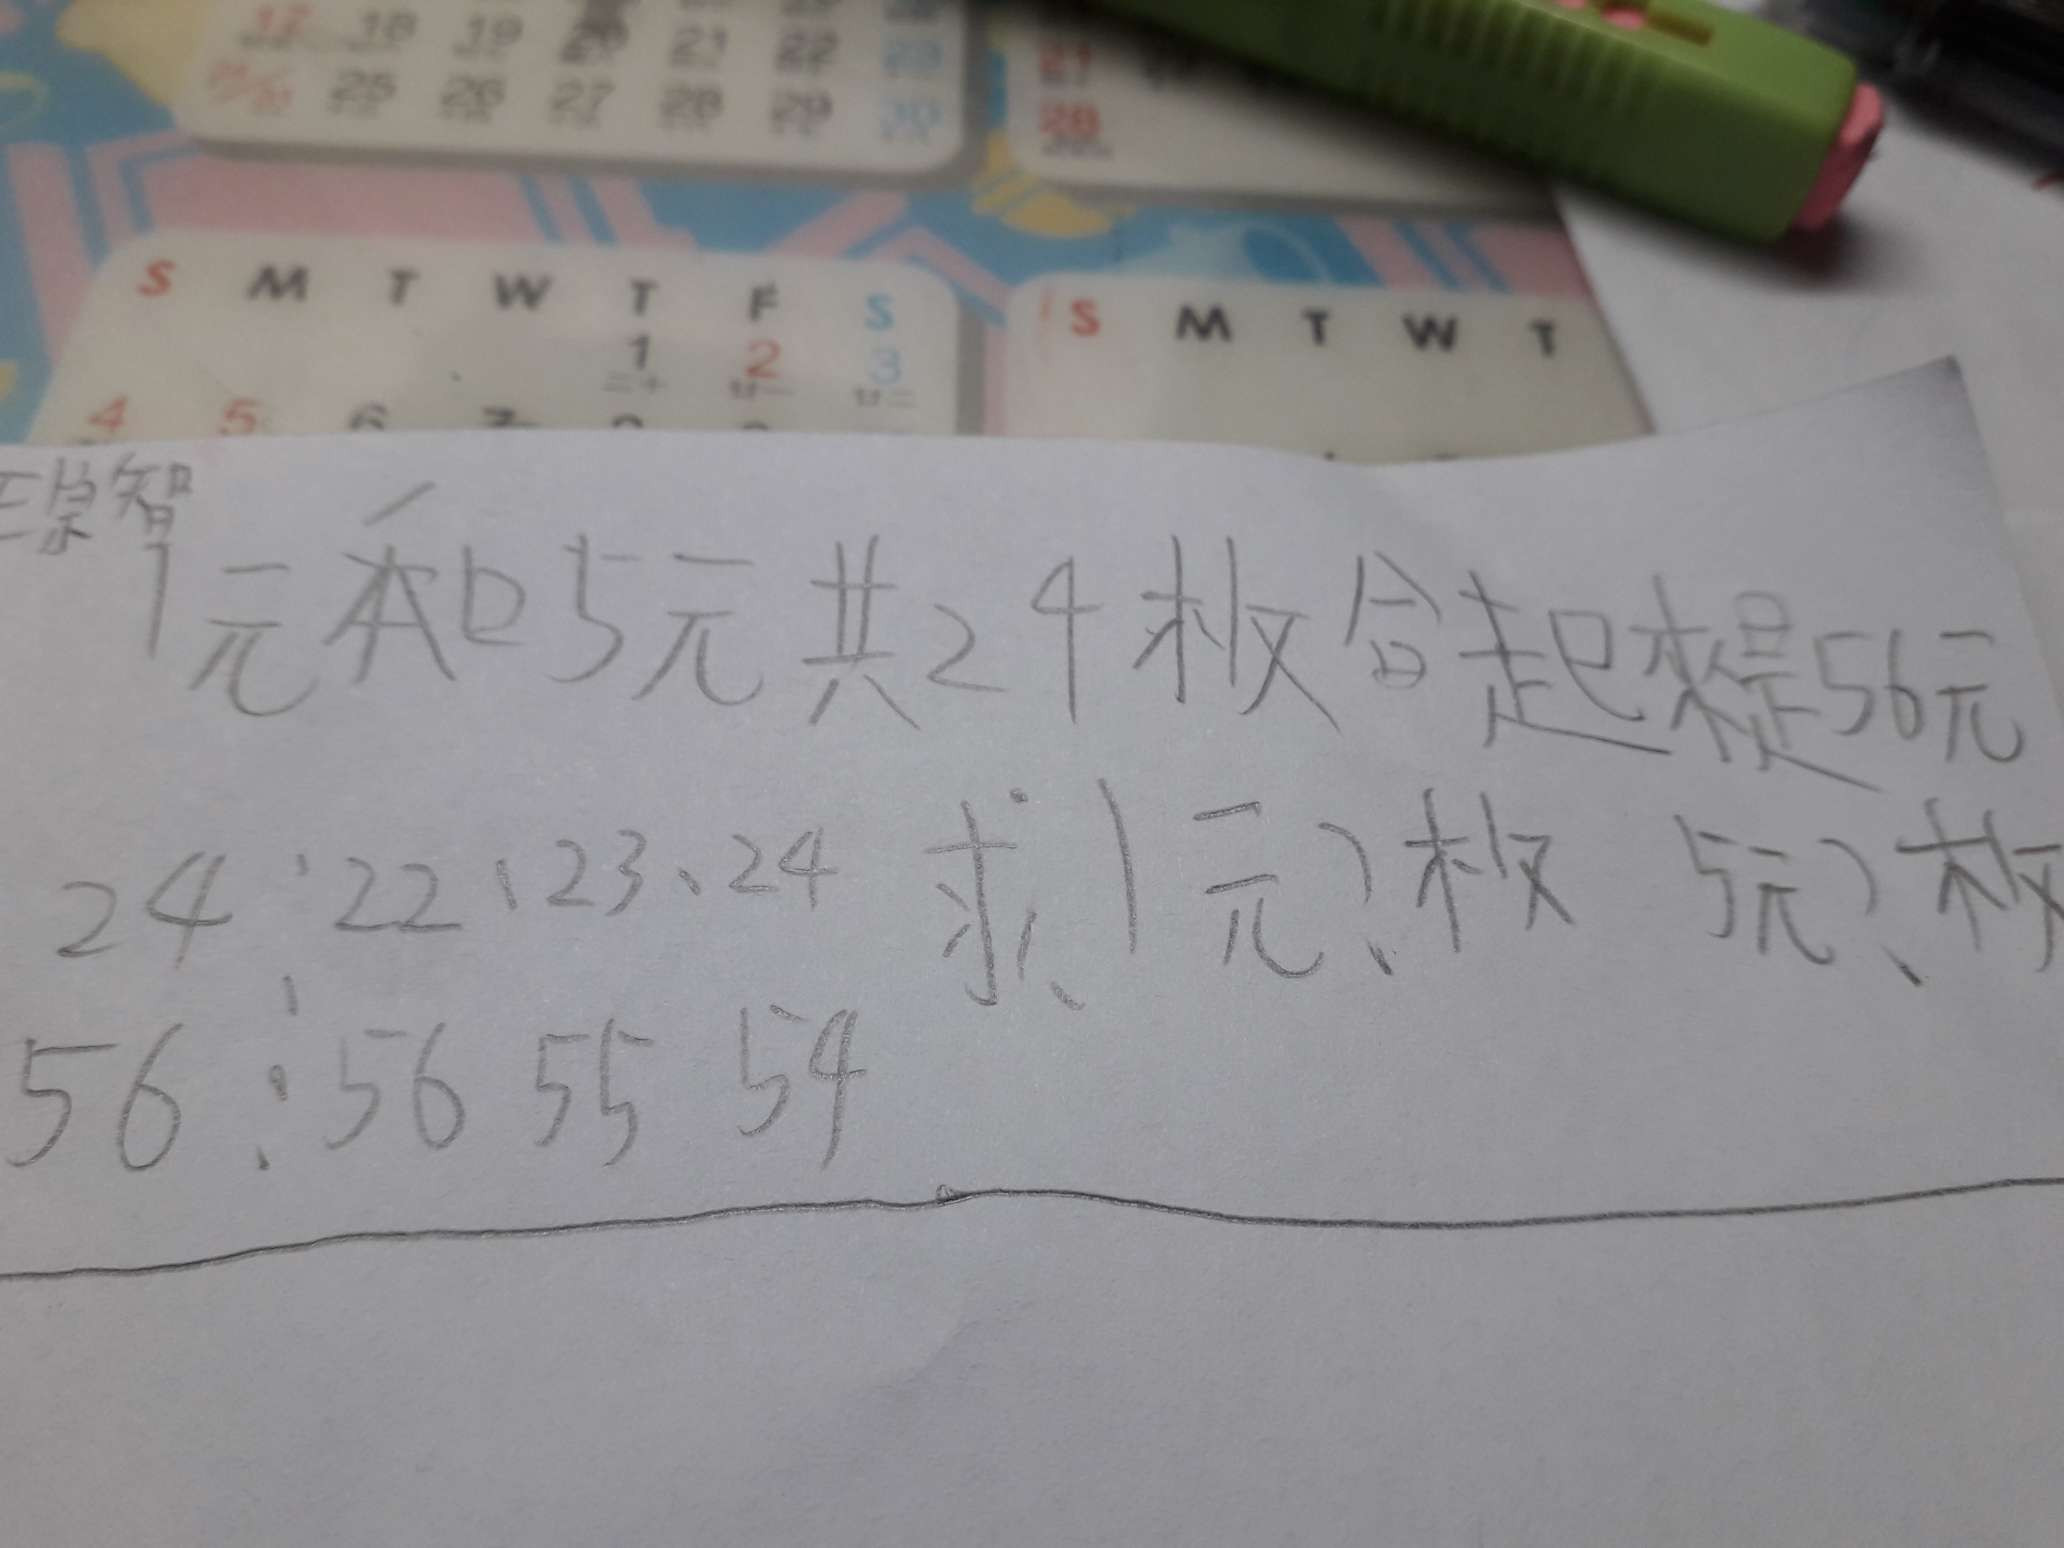 17 18 19 20 21 22 23
25 26 27 28 29 30
28
S M T W T F S
1 2 3
4 5 6 7
S M T W T
原智
1元和5元共24枚合起來是56元
24:22、23、24 求1元?枚 5元?枚
56:56 55 54